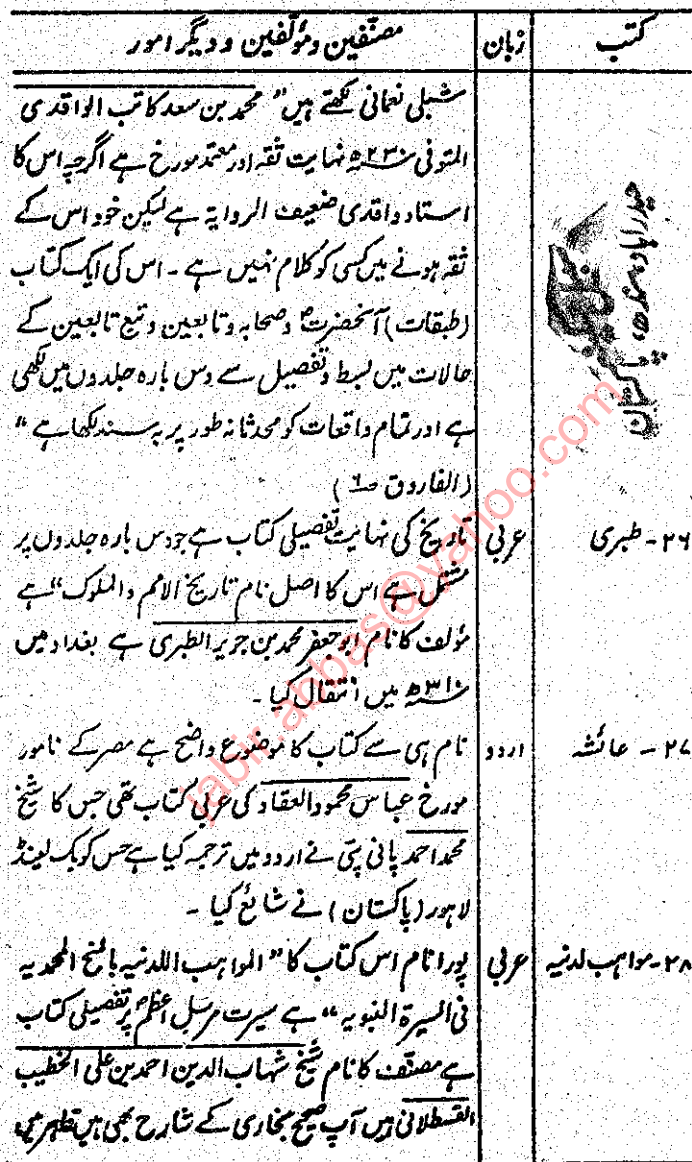 کتب	زبان	مصنّفین و مؤلّفین و دیگر امور
شبلی نعمانی لکھتے ہیں "محمد بن سعد کاتب الواقدی
المتوفی ۲۳۰ھ نہایت ثقہ اور معتمد مورخ ہے اگرچہ اس کا
استاد واقدی ضعیف الروایہ ہے لیکن خود اس کے
ثقہ ہونے میں کسی کو کلام نہیں ہے۔ اس کی ایک کتاب
(طبقات) آنحضرتؐ و صحابہ و تابعین و تبع تابعین کے
حالات میں بسط و تفصیل سے دس بارہ جلدوں میں لکھی
ہے اور تمام واقعات کو محدثانہ طور پر بہ سند لکھا ہے"
(الفاروق ص۶)
۲۶- طبری	عربی	تاریخ کی نہایت تفصیلی کتاب ہے جو دس بارہ جلدوں پر
مشتمل ہے اس کا اصل نام تاریخ الامم والملوک" ہے
مؤلف کا نام ابو جعفر محمد بن جریر الطبری ہے بغداد میں
۳۱۰ھ میں انتقال کیا۔
۲۷- عائشہ	اردو	نام ہی سے کتاب کا موضوع واضح ہے مصر کے نامور
مورخ عباس محمود العقاد کی عربی کتاب تھی جس کا شیخ
محمد احمد پانی پتی نے اردو میں ترجمہ کیا ہے جس کو بک لینڈ
لاہور (پاکستان) نے شائع کیا۔
۲۸- مواہب لدنیہ	عربی	پورا نام اس کتاب کا "المواہب اللدنیہ بالمنح المحمدیہ
فی السیرۃ النبویہ" ہے سیرت مرسل اعظمؐ پر تفصیلی کتاب
ہے مصنّف کا نام شیخ شہاب الدین احمد بن علی الخطیب
القسطلانی ہیں آپ صحیح بخاری کے شارح بھی ہیں
jabir.abbas@yahoo.com